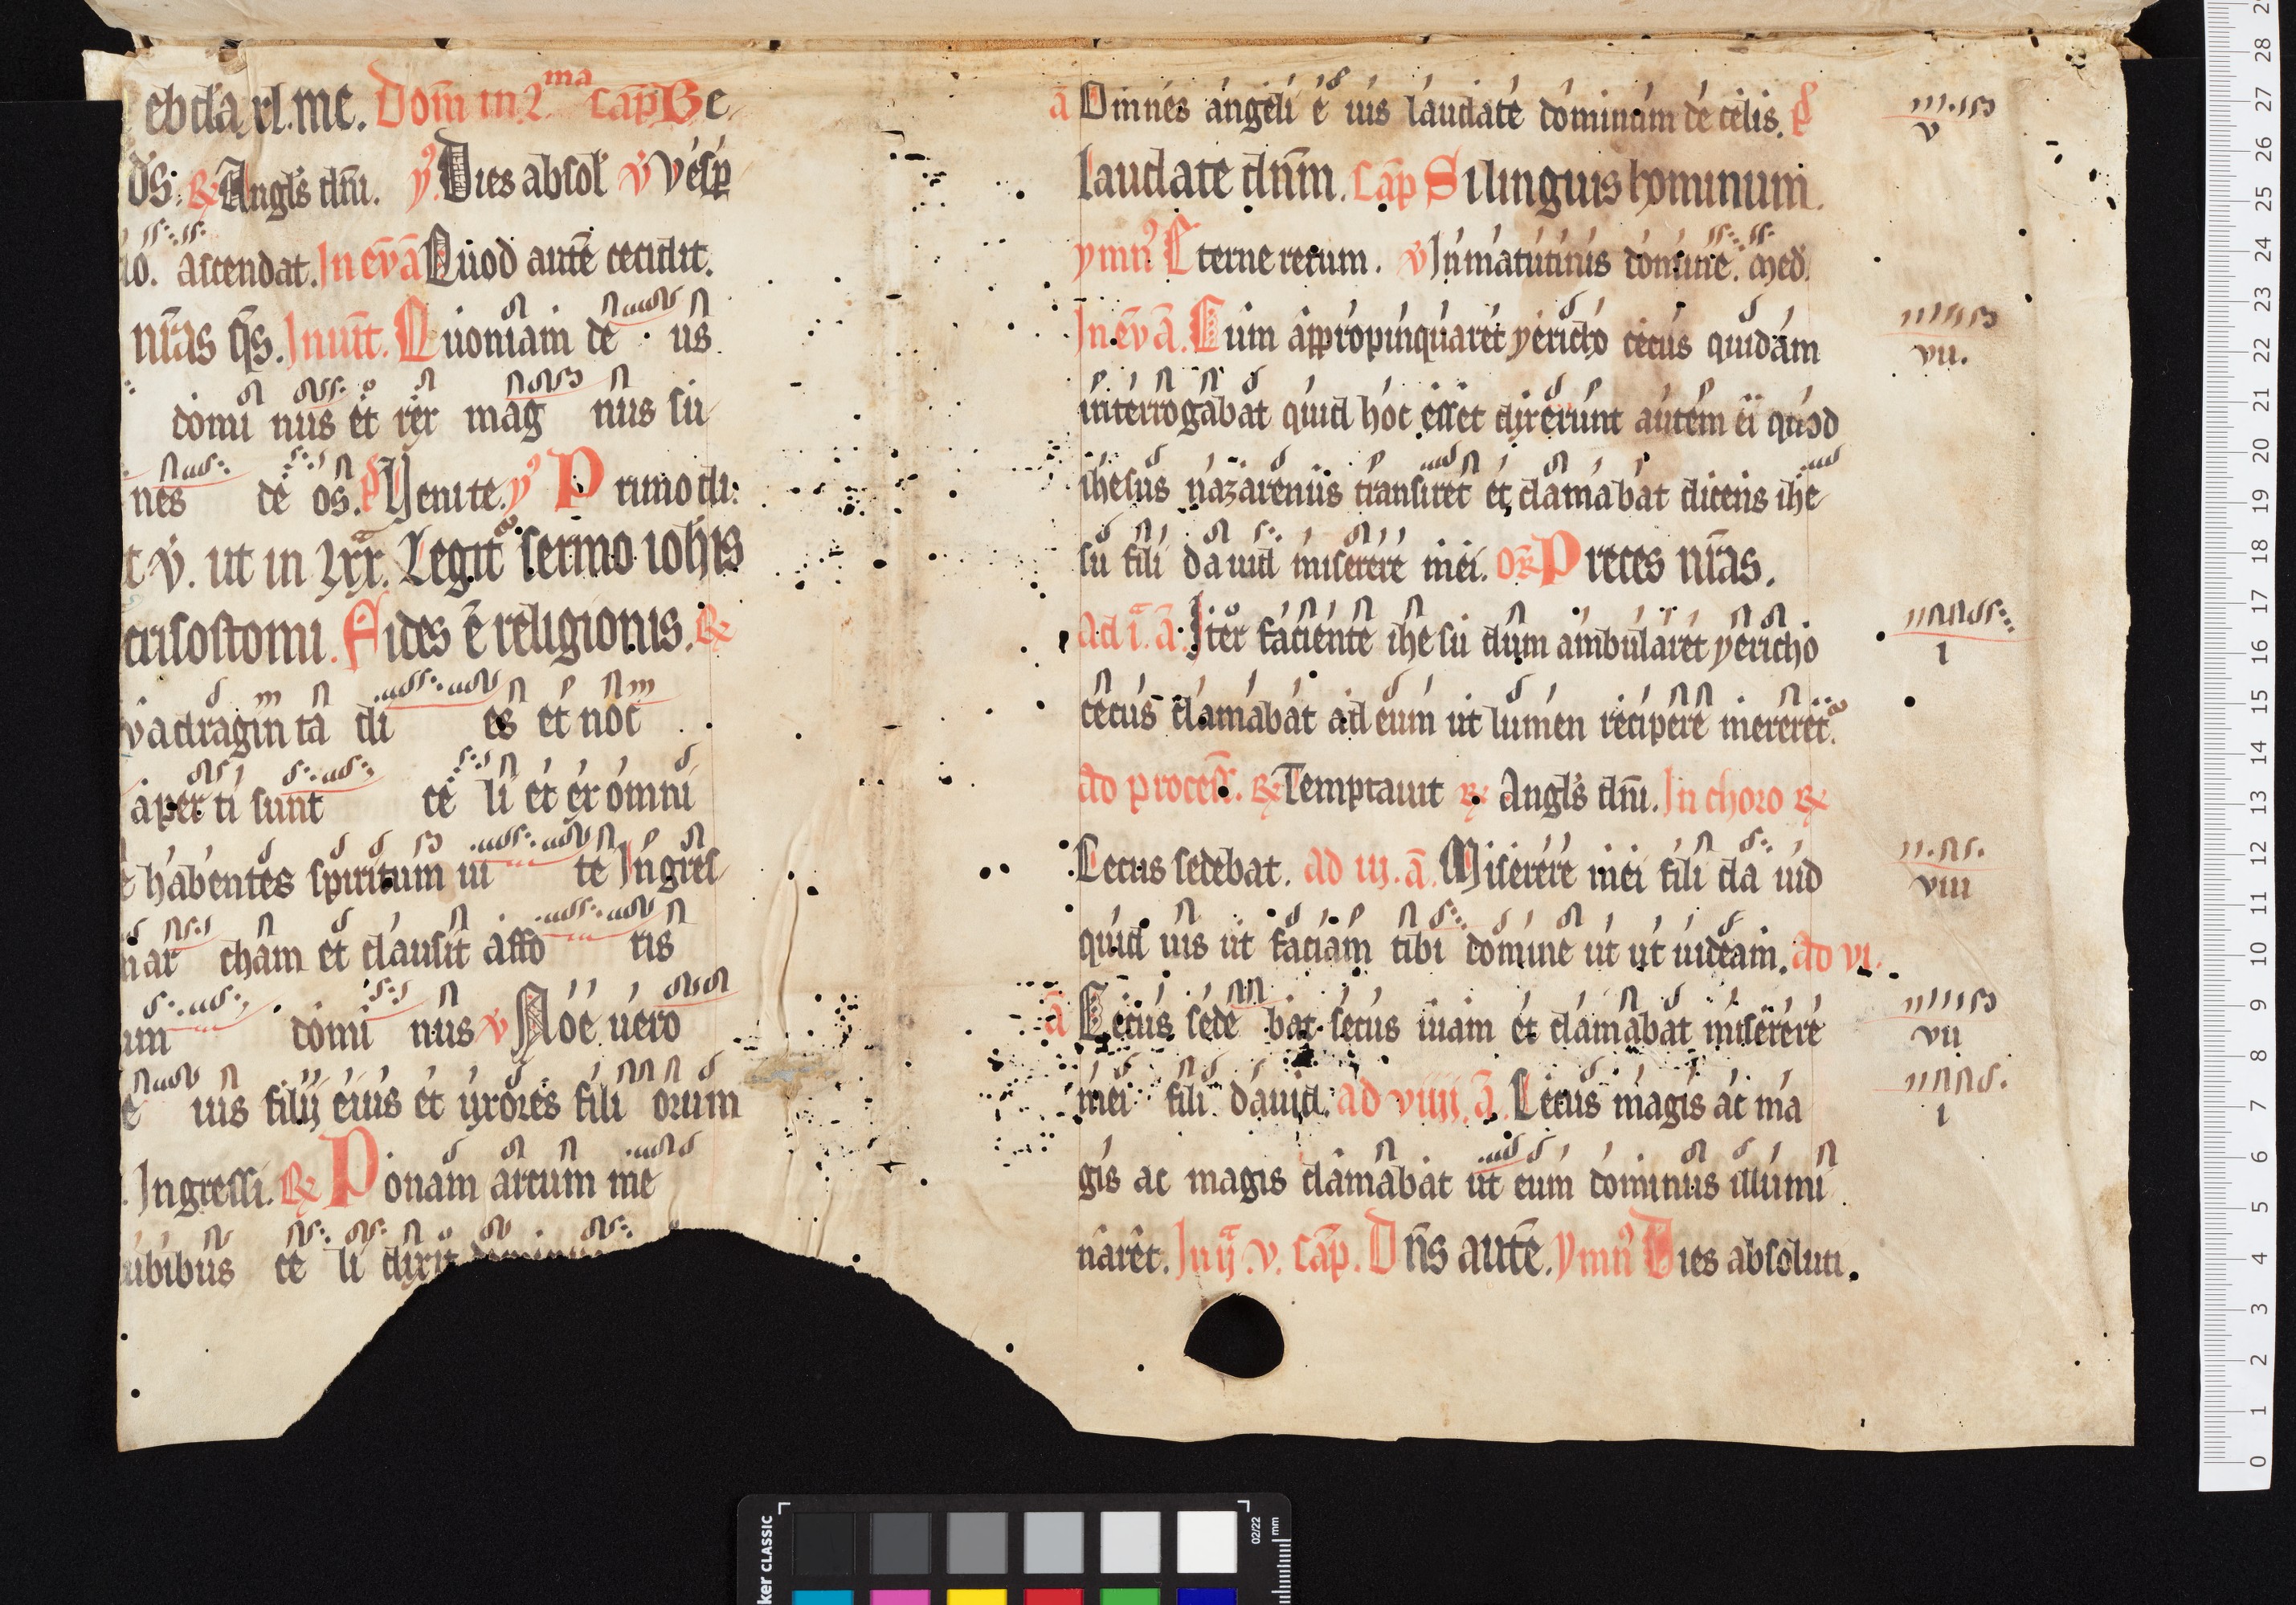 ebda xl. me. Dom̄ in 2ma cap̄ Be
ds. ℟ Angls dn̄i. y⁹ Dies absol' v̇ Vesp̱
io. ascendat. In ev̄ ā Quod autē cecidit.
nr̄as q̄s. Inuit̄. Quoniam de us
domi nus et rex mag nus su
nes de os. p̄s Venite. y⁹ Primo di
t v̇. ut in lxx. Legit² sermo ioh̄is
crisostomi. Fides ē religionis. ℟
vadragin ta di es et noc
aper ti sunt ce li et ex omni
e habentes spiritum ui te Ingres
nar cham et clausit affo ris
um domi nus v̇ Noe uero
e uis filij eius et uxores fili orum
Ingressi. ℟ Ponam arcum me
ubibus ce li dixit dominus
ā Omnes angeli e ius laudate dominum de celis. p̄s
laudate dn̄m. Cap̄ Si linguis hominum.
ymn⁹ Eterne rerum. v̇ In matutinis domine. med.
In ev̄ ā. Cum appropinquaret yericho cecus quidam
interrogabat quid hoc esset dixerunt autem ei quod
ihesus nazarenus transiret et clamabat dicens ihe
su fili dauid miserere mei. or̄ Preces nr̄as.
ad i. ā. Iter faciente ihesu dum ambularet yericho
cecus clamabat ad eum ut lumen recipere mereret².
ad process̄. ℟ Temptauit ℟ Angls dn̄i. In choro ℟
Cecus sedebat. ad iij. ā. Miserere mei fili da uid
quid uis ut faciam tibi domine ut ut uideam. ad vi.
ā Cecus sede bat secus uiam et clamabat miserere
mei fili dauid. ad viiij. ā. Cecus magis ac ma
gis ac magis clamabat ut eum dominus illumi
naret. In ij v. Cap̄. Dn̄s autē. ymn⁹ Dies absoluti.
v
vii.
i
viii
vii
i